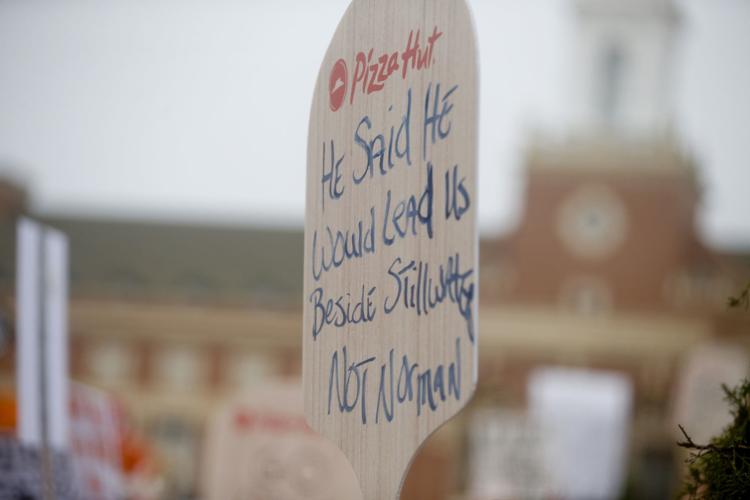 Pizza Hut
HE SAid HE
Would LEAd Us
BEsidE Stillwater
NOT NorMAN